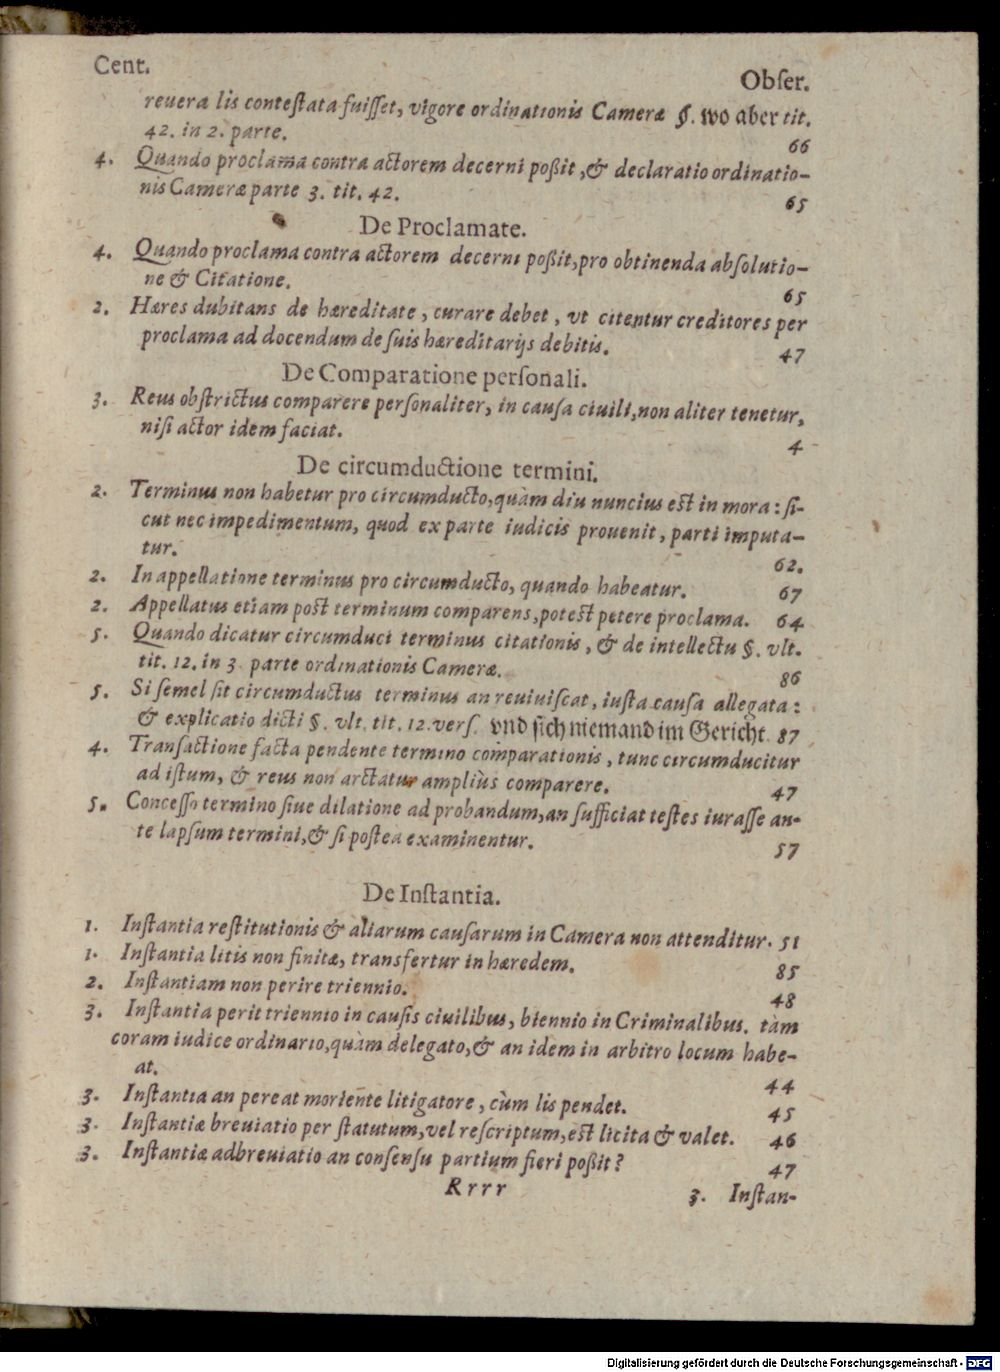 Cent.
Obſer.
reuera lis conteſtata fuiſſet, vigore ordinationis Cameræ §. wo aber tit.
42. in 2. parte. 66
4. Quando proclama contra actorem decerni poßit, & declaratio ordinatio-
nis Cameræ parte 3. tit. 42. 65
De Proclamate.
4. Quando proclama contra actorem decerni poßit, pro obtinenda abſolutio-
ne & Citatione. 65
2. Hæres dubitans de hæreditate, curare debet, vt citentur creditores per
proclama ad docendum de ſuis hæreditarijs debitis. 47
De Comparatione perſonali.
3. Reus obſtrictus comparere perſonaliter, in cauſa ciuili, non aliter tenetur,
niſi actor idem faciat. 4
De circumductione termini.
2. Terminus non habetur pro circumducto, quàm diu nuncius est in mora: ſi-
cut nec impedimentum, quod ex parte iudicis prouenit, parti imputa-
tur. 62.
2. In appellatione terminus pro circumducto, quando habeatur. 67
2. Appellatus etiam post terminum comparens, potest petere proclama. 64
5. Quando dicatur circumduci terminus citationis, & de intellectu §. vlt.
tit. 12. in 3 parte ordinationis Cameræ. 86
5. Si ſemel ſit circumductus terminus an reuiuiſcat, iusta cauſa allegata:
& explicatio dicti §. vlt. tit. 12. verſ. vnd ſich niemand im Gericht. 87
4. Tranſactione facta pendente termino comparationis, tunc circumducitur
ad istum, & reus non arctatur ampliùs comparere. 47
5. Conceſſo termino ſiue dilatione ad probandum, an ſufficiat testes iuraſſe an-
te lapſum termini, & ſi poſtea examinentur. 57
De Inſtantia.
1. Inſtantia reſtitutionis & aliarum cauſarum in Camera non attenditur. 51
1. Inſtantia litis non finitæ, transfertur in hæredem. 85
2. Inſtantiam non perire triennio. 48
3. Inſtantia perit triennio in cauſis ciuilibus, biennio in Criminalibus. tàm
coram iudice ordinario, quàm delegato, & an idem in arbitro locum habe-
at. 44
3. Inſtantia an pereat moriente litigatore, cùm lis pendet. 45
3. Inſtantiæ breuiatio per ſtatutum, vel reſcriptum, est licita & valet. 46
3. Inſtantiæ adbreuiatio an conſenſu partium fieri poßit? 47
Rrrr
3. Inſtan-
Digitalisierung gefördert durch die Deutsche Forschungsgemeinschaft - DFG